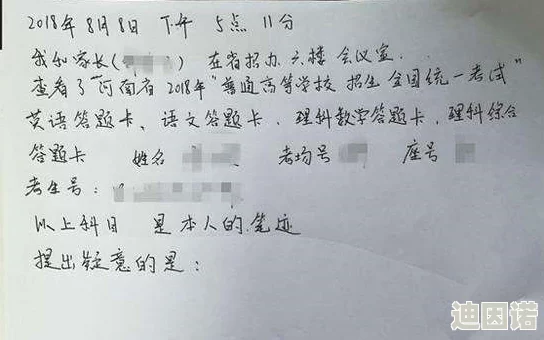 2018年8月8日 下午 5点11分
我和家长( ) 在省招办六楼会议室.
查看了"河南省2018年"普通高等学校招生全国统一考试"
英语答题卡、语文答题卡、理科数学答题卡,理科综合
答题卡 姓名 考场号 座号
考生号:
以上科目 是本人的笔迹
提出疑意的是:
迪因诺